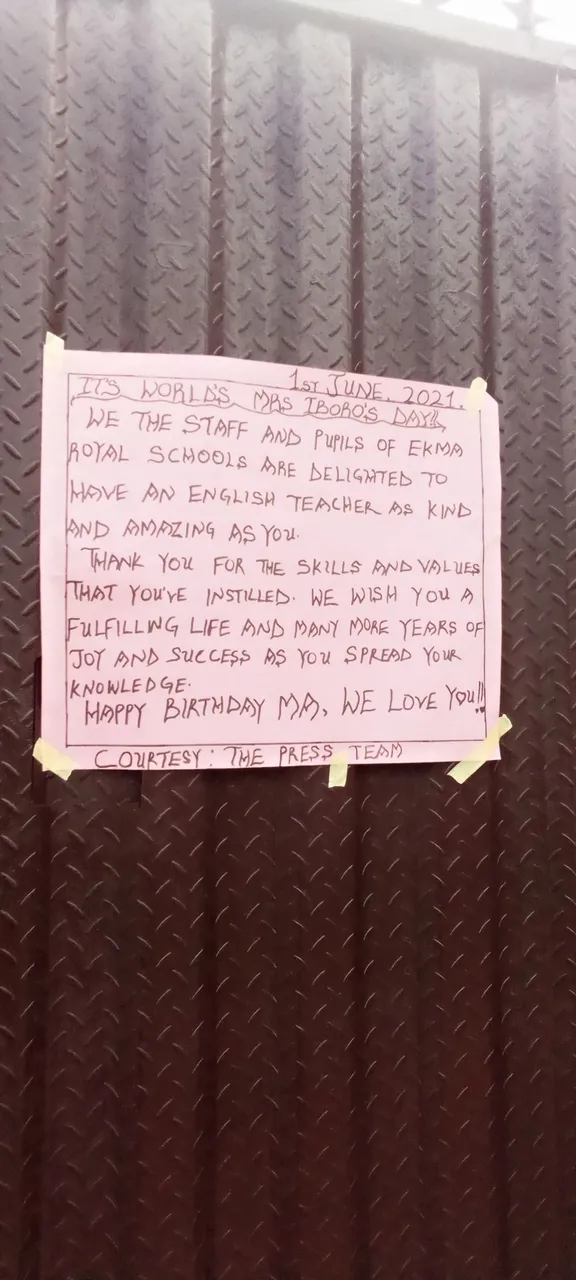 1ST JUNE, 2021.
IT'S WORLD'S MRS IBORO'S DAY!!
WE THE STAFF AND PUPILS OF EKMA
ROYAL SCHOOLS ARE DELIGHTED TO
HAVE AN ENGLISH TEACHER AS KIND
AND AMAZING AS YOU.
THANK YOU FOR THE SKILLS AND VALUES
THAT YOU'VE INSTILLED. WE WISH YOU A
FULFILLING LIFE AND MANY MORE YEARS OF
JOY AND SUCCESS AS YOU SPREAD YOUR
KNOWLEDGE.
HAPPY BIRTHDAY MA, WE LOVE YOU!!
COURTESY: THE PRESS TEAM